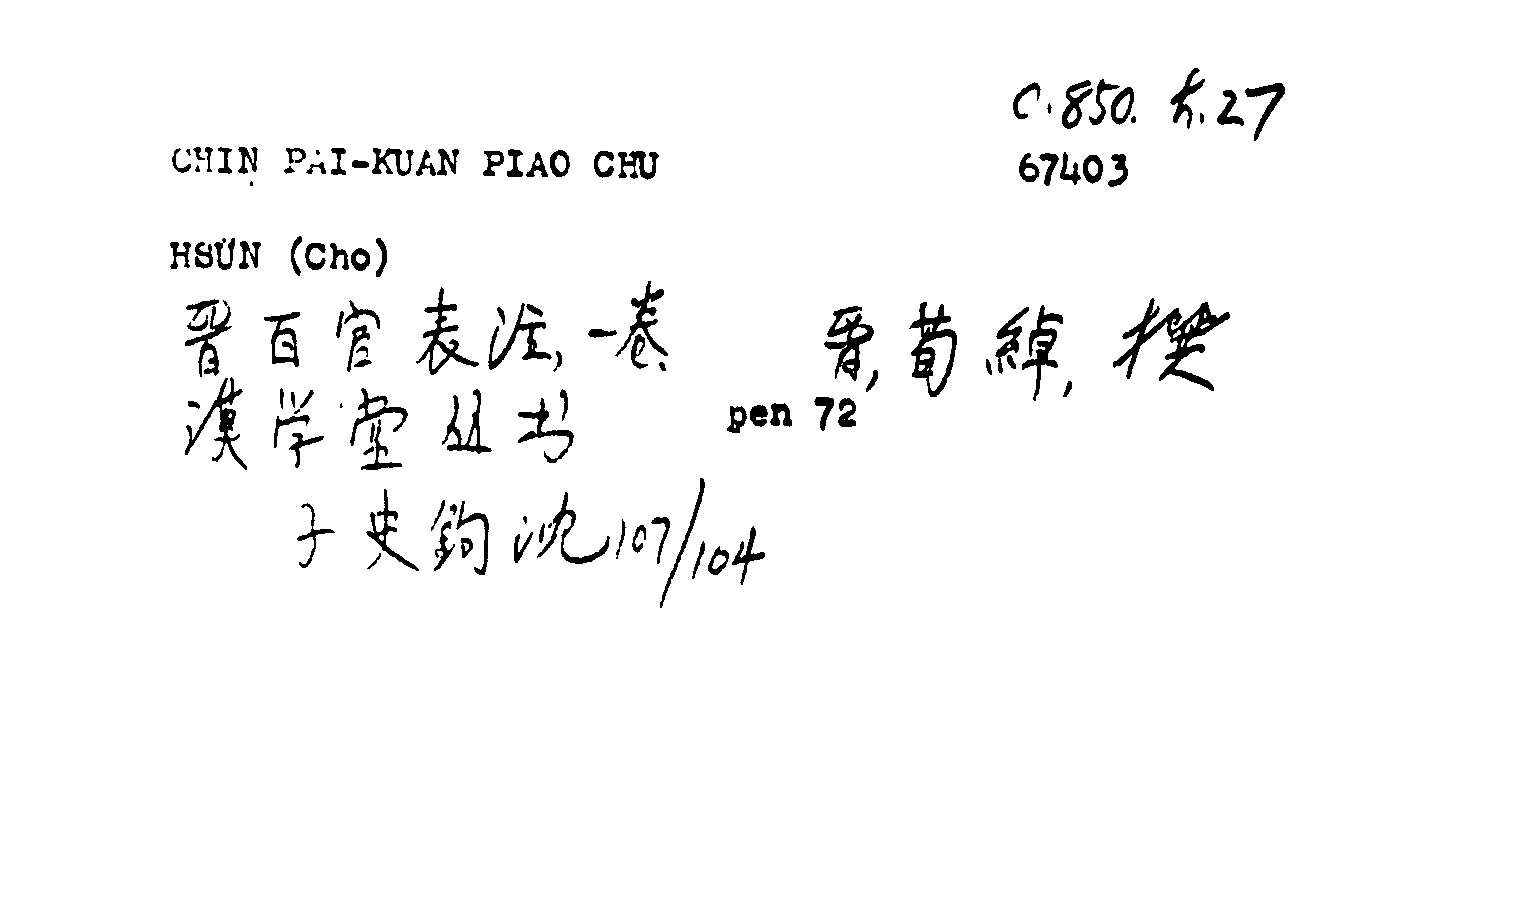 C.850. k.27
CHIN PAI-KUAN PIAO CHU 67403
HSÜN (Cho)
晋百官表注, 一卷, 晋, 荀綽, 撰
漢学堂丛书 pen 72
子史鉤沈 107/104